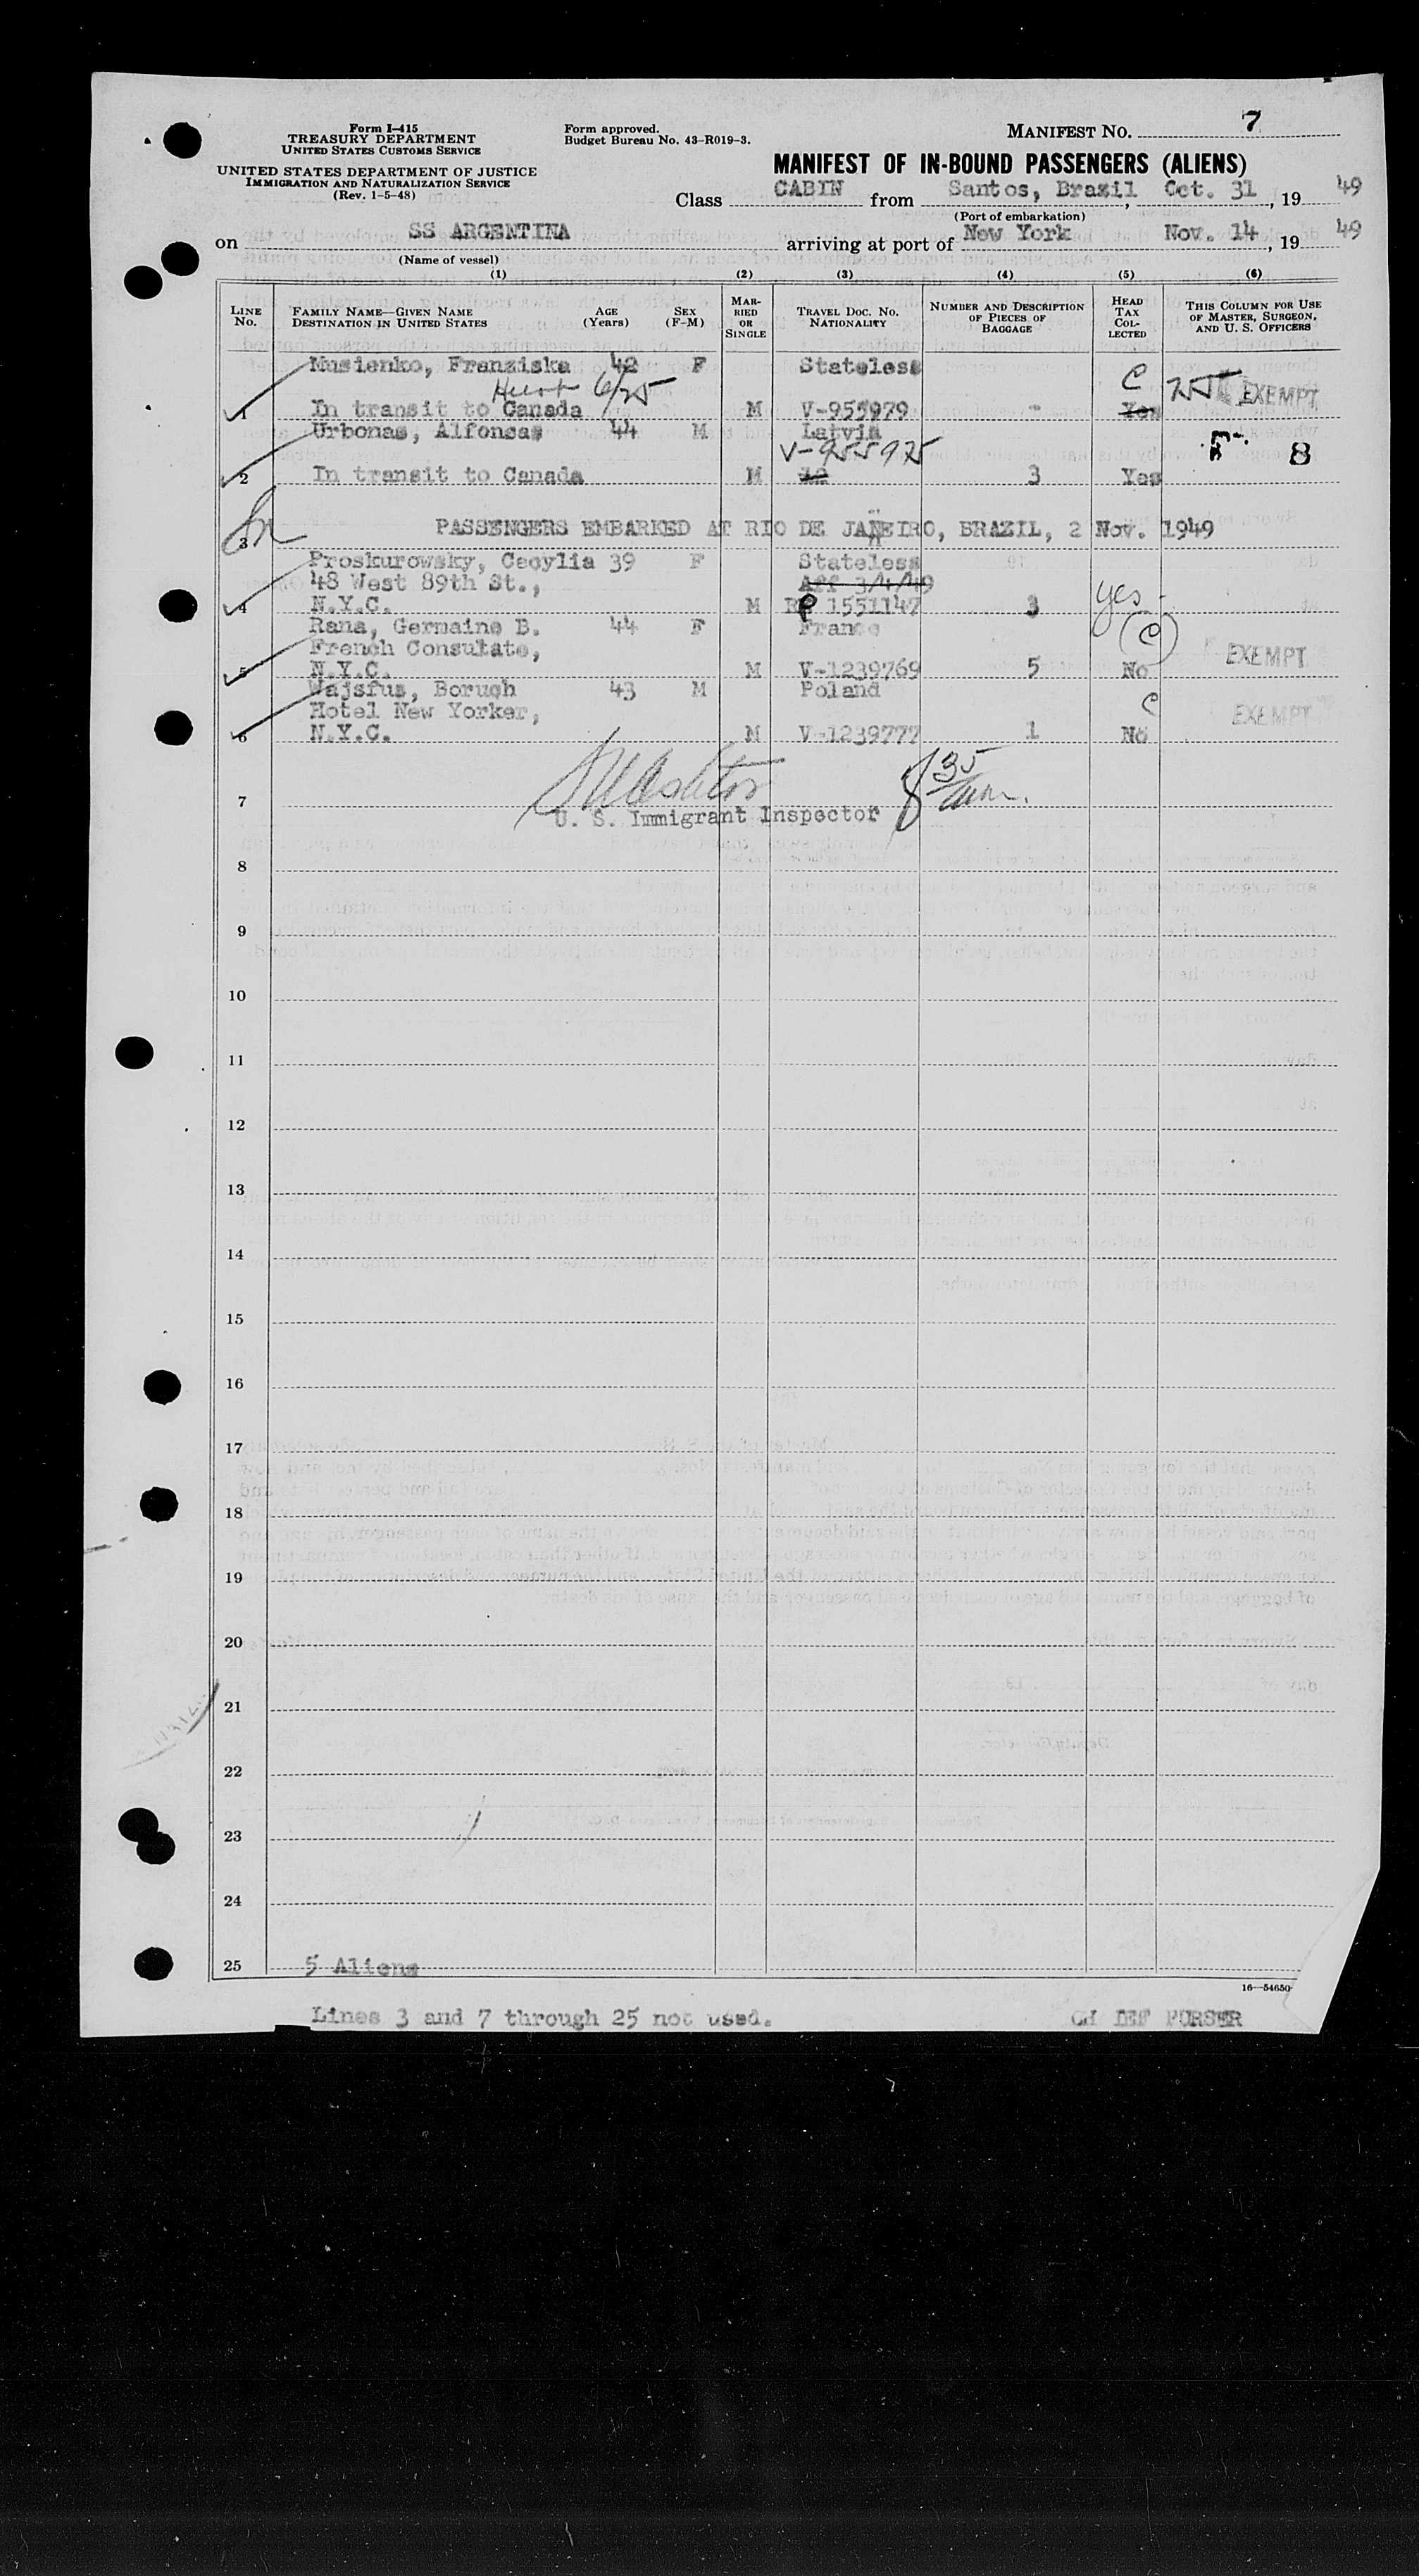 Form I-415
TREASURY DEPARTMENT
UNITED STATES CUSTOMS SERVICE
UNITED STATES DEPARTMENT OF JUSTICE
IMMIGRATION AND NATURALIZATION SERVICE
(Rev. 1-5-48)
Form approved.
Budget Bureau No. 43-R019-3.
MANIFEST NO. 7
MANIFEST OF IN-BOUND PASSENGERS (ALIENS)
Class CABIN from Santos, Brazil, Oct. 31, 19 49
(Port of embarkation)
on SS ARGENTINA arriving at port of New York Nov. 14, 19 49
(Name of vessel)
(1) (2) (3) (4) (5) (6)
LINE No. FAMILY NAME—GIVEN NAME DESTINATION IN UNITED STATES AGE (Years) SEX (F-M) MARRIED OR SINGLE TRAVEL DOC. NO. NATIONALITY NUMBER AND DESCRIPTION OF PIECES OF BAGGAGE HEAD TAX COLLECTED THIS COLUMN FOR USE OF MASTER, SURGEON, AND U. S. OFFICERS
Musienko, Franziska 42 F Stateless C
6/25 255 EXEMPT
1 In transit to Canada M V-955979 - Yes
Urbonas, Alfonsas 44 M Latvia
V-955975 8
2 In transit to Canada M 3 Yes
3 PASSENGERS EMBARKED AT RIO DE JANEIRO, BRAZIL, 2 Nov. 1949
Proskurowsky, Cecylia 39 F Stateless
48 West 89th St., Aff 3/4/49 yes -
4 N.Y.C. M RP 1551147 3
Rana, Germaine B. 44 F France (C)
French Consulate, EXEMPT
5 N.Y.C. M V-1239769 5 No
Wajsfus, Boruch 43 M Poland C
Hotel New Yorker, EXEMPT
6 N.Y.C. M V-1239777 1 No
7
U. S. Immigrant Inspector
8
9
10
11
12
13
14
15
16
17
18
19
20
21
22
23
24
25 5 Aliens
16—54650
Lines 3 and 7 through 25 not used. CHIEF PURSER